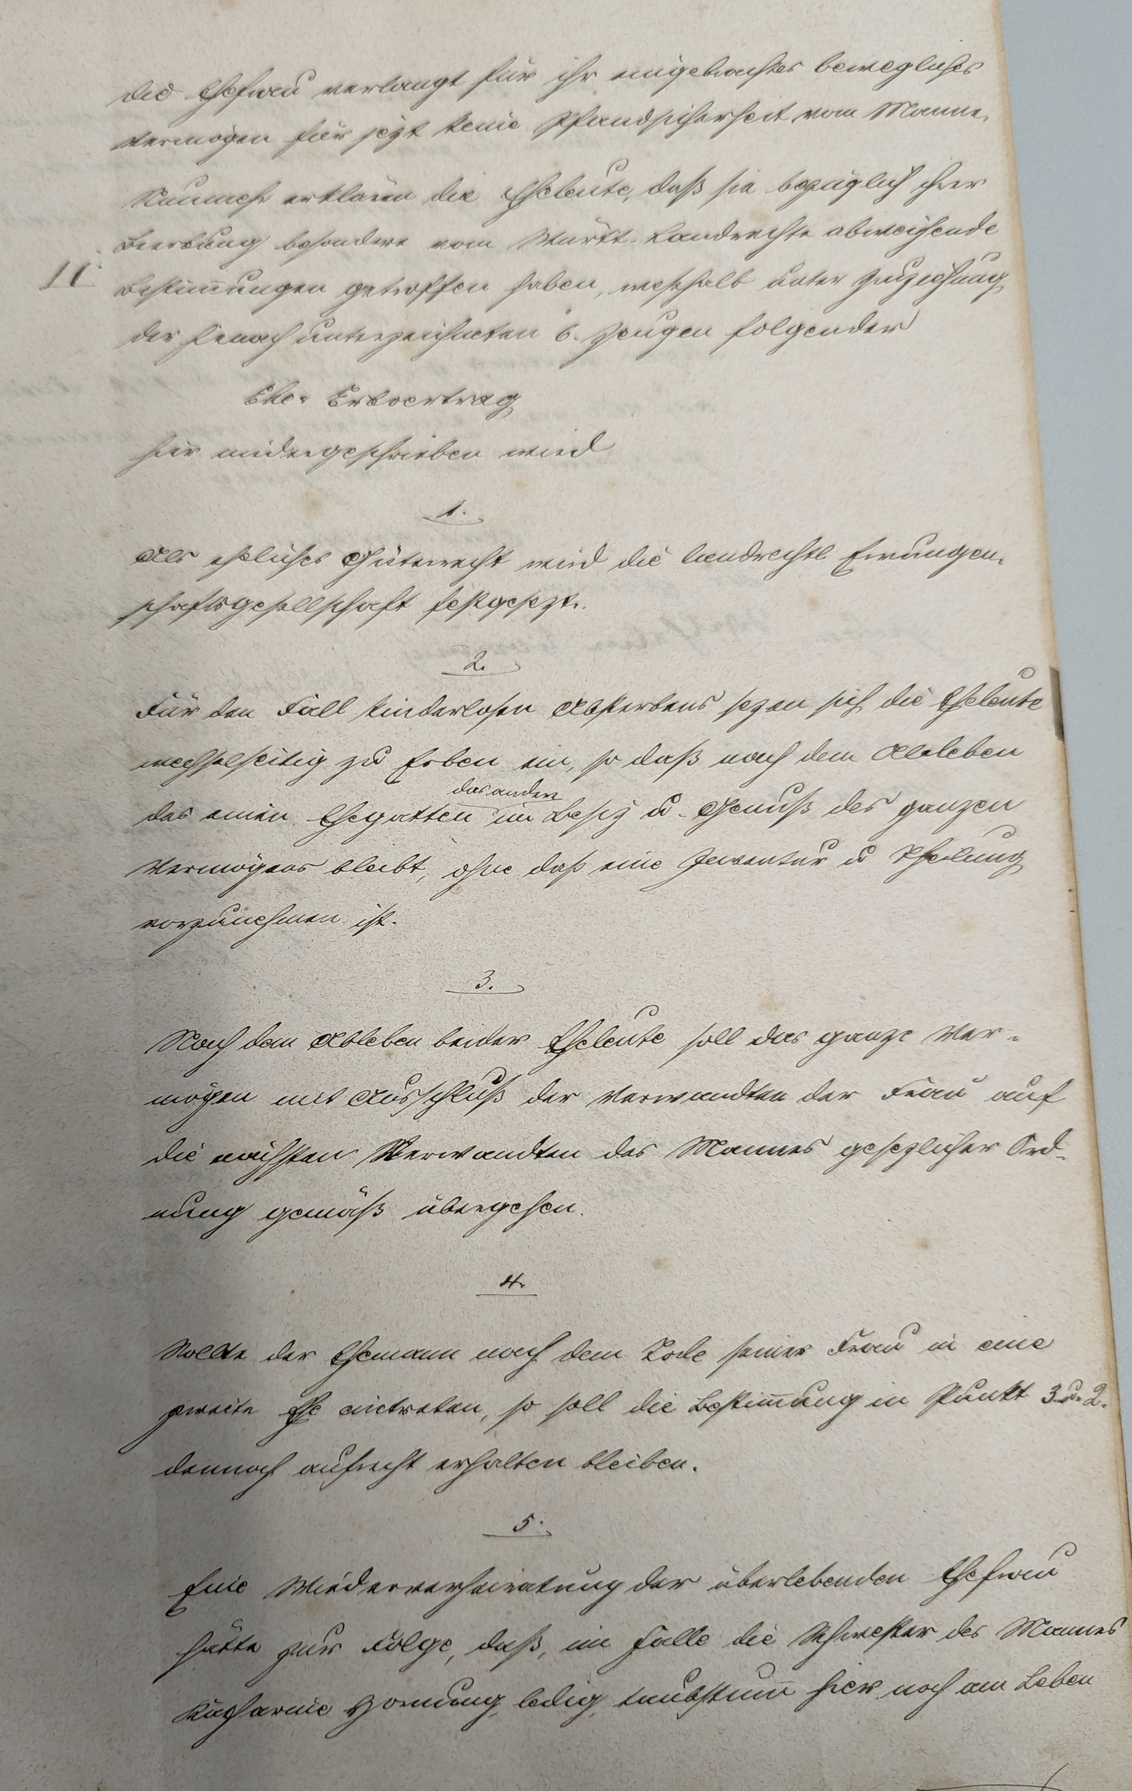 Die Ehefrau verlangt für ihr eingebrachtes bewegliches
Vermögen für jezt keine Pfandsicherheit vom Manne.
Sonach erklären die Eheleute, daß sie bezüglich ihrer
Beerbung besondere vom Württ. Landrechte abweichende
II. Bestim̄ungen getroffen haben, weshalb unter Zuziehung
der hienach unterzeichneten 6. Zeugen folgender
Ehe- Erbvertrag
hier niedergeschrieben wird
1.
Als ehliches Güterrecht wird die landrechtl. Errungen-
schaftsgesellschaft festgesezt.
2.
Für den Fall kinderlosen Absterbens sezen sich die Eheleute
wechselseitig zu Erben ein, so daß nach dem Ableben
das andere
des einen Ehegatten im Besiz u. Genuß des ganzen
Vermögens bleibt, ohne daß eine Inventur u Theilung
vorzunehmen ist.
3.
Nach dem Ableben beider Eheleute soll das ganze Ver-
mögen mit Ausschluß der Verwandten der Frau auf
die nächsten Verwandten des Mannes gesezlicher Ord-
nung gemäß übergehen.
4.
Sollte der Ehemann nach dem Tode seiner Frau in eine
zweite Ehe eintreten, so soll die Bestim̄ung in Punkt 3 u. 2.
dennoch aufrecht erhalten bleiben.
5.
Eine Wiederverheiratung der überlebenden Ehefrau
hätte zur Folge, daß, im Falle die Schwester des Mannes
Katharine Hornung, ledig, taubstum̄ hier noch am Leben